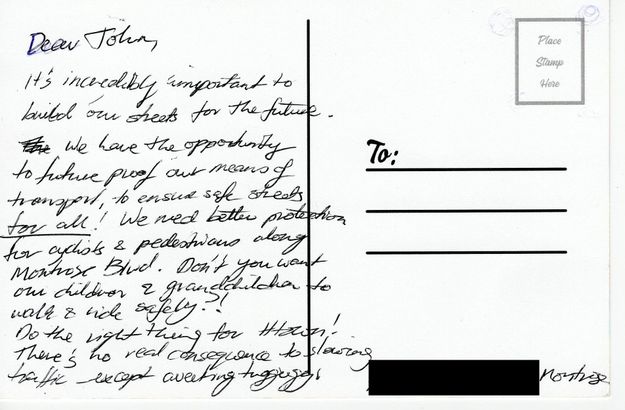 Dear John,
It's incredibly important to
build our streets for the future.
We have the opportunity
to future proof our means of
transport, to ensure safe streets
for all! We need better protection
for cyclists & pedestrians along
Montrose Blvd. Don't you want
our children & grandchildren to
walk & ride safely?!
Do the right thing for Htown!
There's no real consequence to slowing
traffic except averting tragedy!
Montrose
Place
Stamp
Here
To: